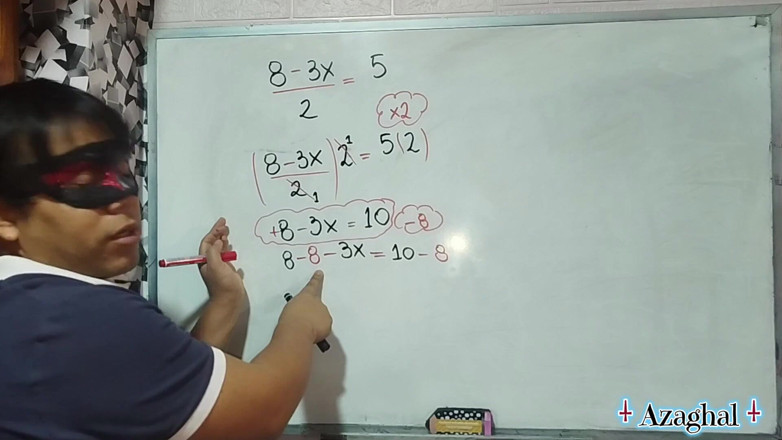 8 - 3x
2
= 5
×2
(8 - 3x / 2) 2 1 = 5(2)
1
+8 - 3x = 10 -8
8 - 8 - 3x = 10 - 8
Azaghal